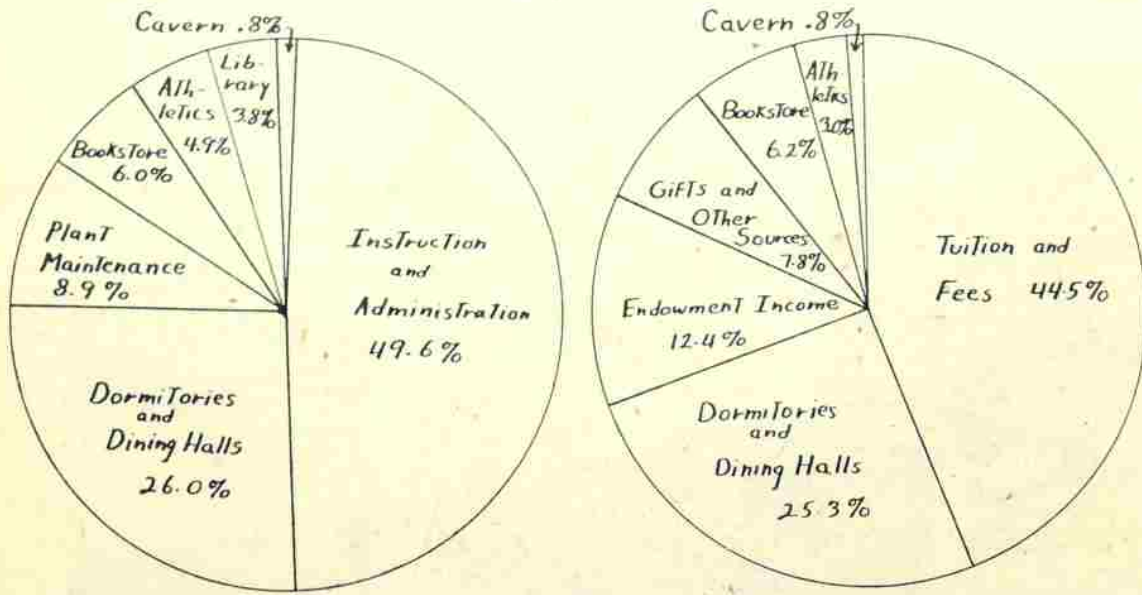 Cavern .8%
Lib-
rary
3.8%
Ath-
letics
4.9%
Bookstore
6.0%
Plant
Maintenance
8.9%
Dormitories
and
Dining Halls
26.0%
Instruction
and
Administration
49.6%
Cavern .8%
Ath-
letics
3.0%
Bookstore
6.2%
Gifts and
Other
Sources
7.8%
Endowment Income
12.4%
Dormitories
and
Dining Halls
25.3%
Tuition and
Fees 44.5%